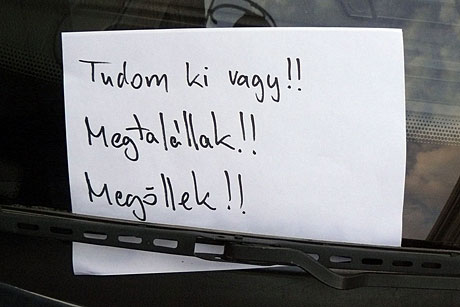 Tudom ki vagy!!
Megtalállak!!
Megöllek!!